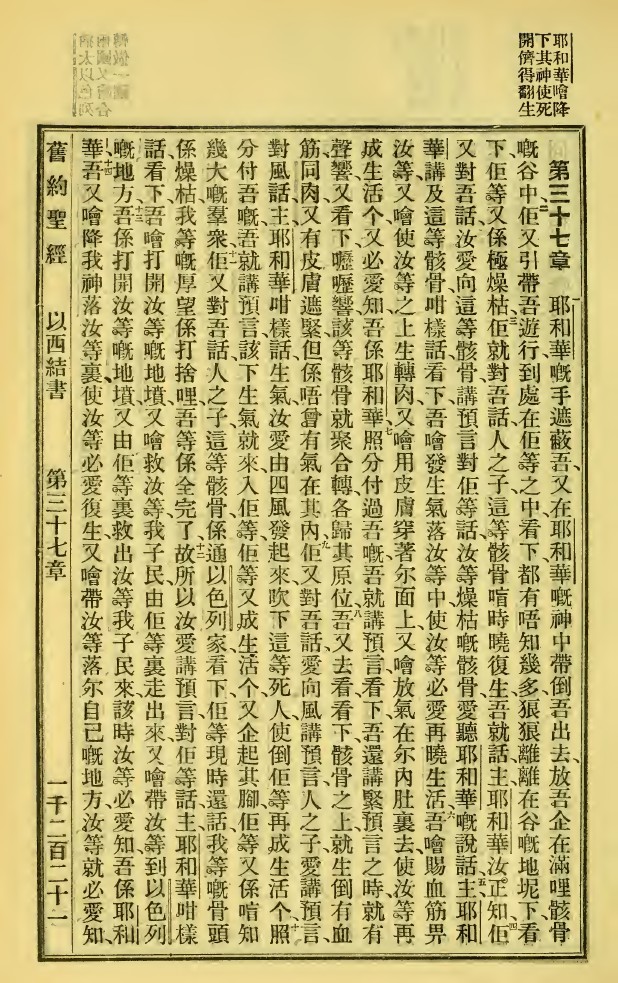 耶和華噲降
下其神使死
開儕得翻生
第三十七章 一耶和華嘅手遮蔽吾、又在耶和華嘅神中帶倒吾出去、放吾企在滿哩骸骨
嘅谷中、二佢又引帶吾遊行到處在佢等之中、看下都有唔知幾多狠狠離離在谷嘅地坭下、看
下佢等又係極燥枯、三佢就對吾話、人之子、這等骸骨喑時曉復生、吾就話、主耶和華、汝正知、四佢
又對吾話、汝愛向這等骸骨講預言、對佢等話、汝等燥枯嘅骸骨、愛聽耶和華嘅說話、五主耶和
華講及這等骸骨咁樣話、看下吾噲發生氣落汝等中、使汝等必愛再曉生活、六吾噲賜血筋畀
汝等、又噲使汝等之上生轉肉、又噲用皮膚穿著尔面上、又噲放氣在尔內肚裏去、使汝等再
成生活个、又必愛知吾係耶和華、七照分付過吾嘅、吾就講預言、看下吾還講緊預言之時、就有
聲響、又看下、嚦嚦響、該等骸骨就聚合轉各歸其原位、八吾又去看、看下骸骨之上、就生倒有血
筋同肉、又有皮膚遮緊、但係唔曾有氣在其內、九佢又對吾話、愛向風講預言、人之子、愛講預言、
對風話、主耶和華咁樣話、生氣、汝愛由四風發起來、吹下這等死人、使倒佢等再成生活个、十照
分付吾嘅、吾就講預言、該下生氣就來入佢等、佢等又成生活个、又企起其腳、佢等又係喑知
幾大嘅羣衆、十一佢又對吾話、人之子、這等骸骨係通以色列家、看下佢等現時還話、我等嘅骨頭
係燥枯、我等嘅厚望係打捨哩、吾等係全完了、十二故所以汝愛講預言、對佢等話、主耶和華咁樣
話、看下吾噲打開汝等嘅地墳、又噲救汝等我子民由佢等裏走出來、又噲帶汝等到以色列
嘅地方、十三吾係打開汝等嘅地墳、又由佢等裏救出汝等我子民來、該時汝等必愛知吾係耶和
華、十四吾又噲降我神落汝等裏、使汝等必愛復生、又噲帶汝等落尔自己嘅地方、汝等就必愛知、
舊約聖經 以西結書 第三十七章 一千二百二十一